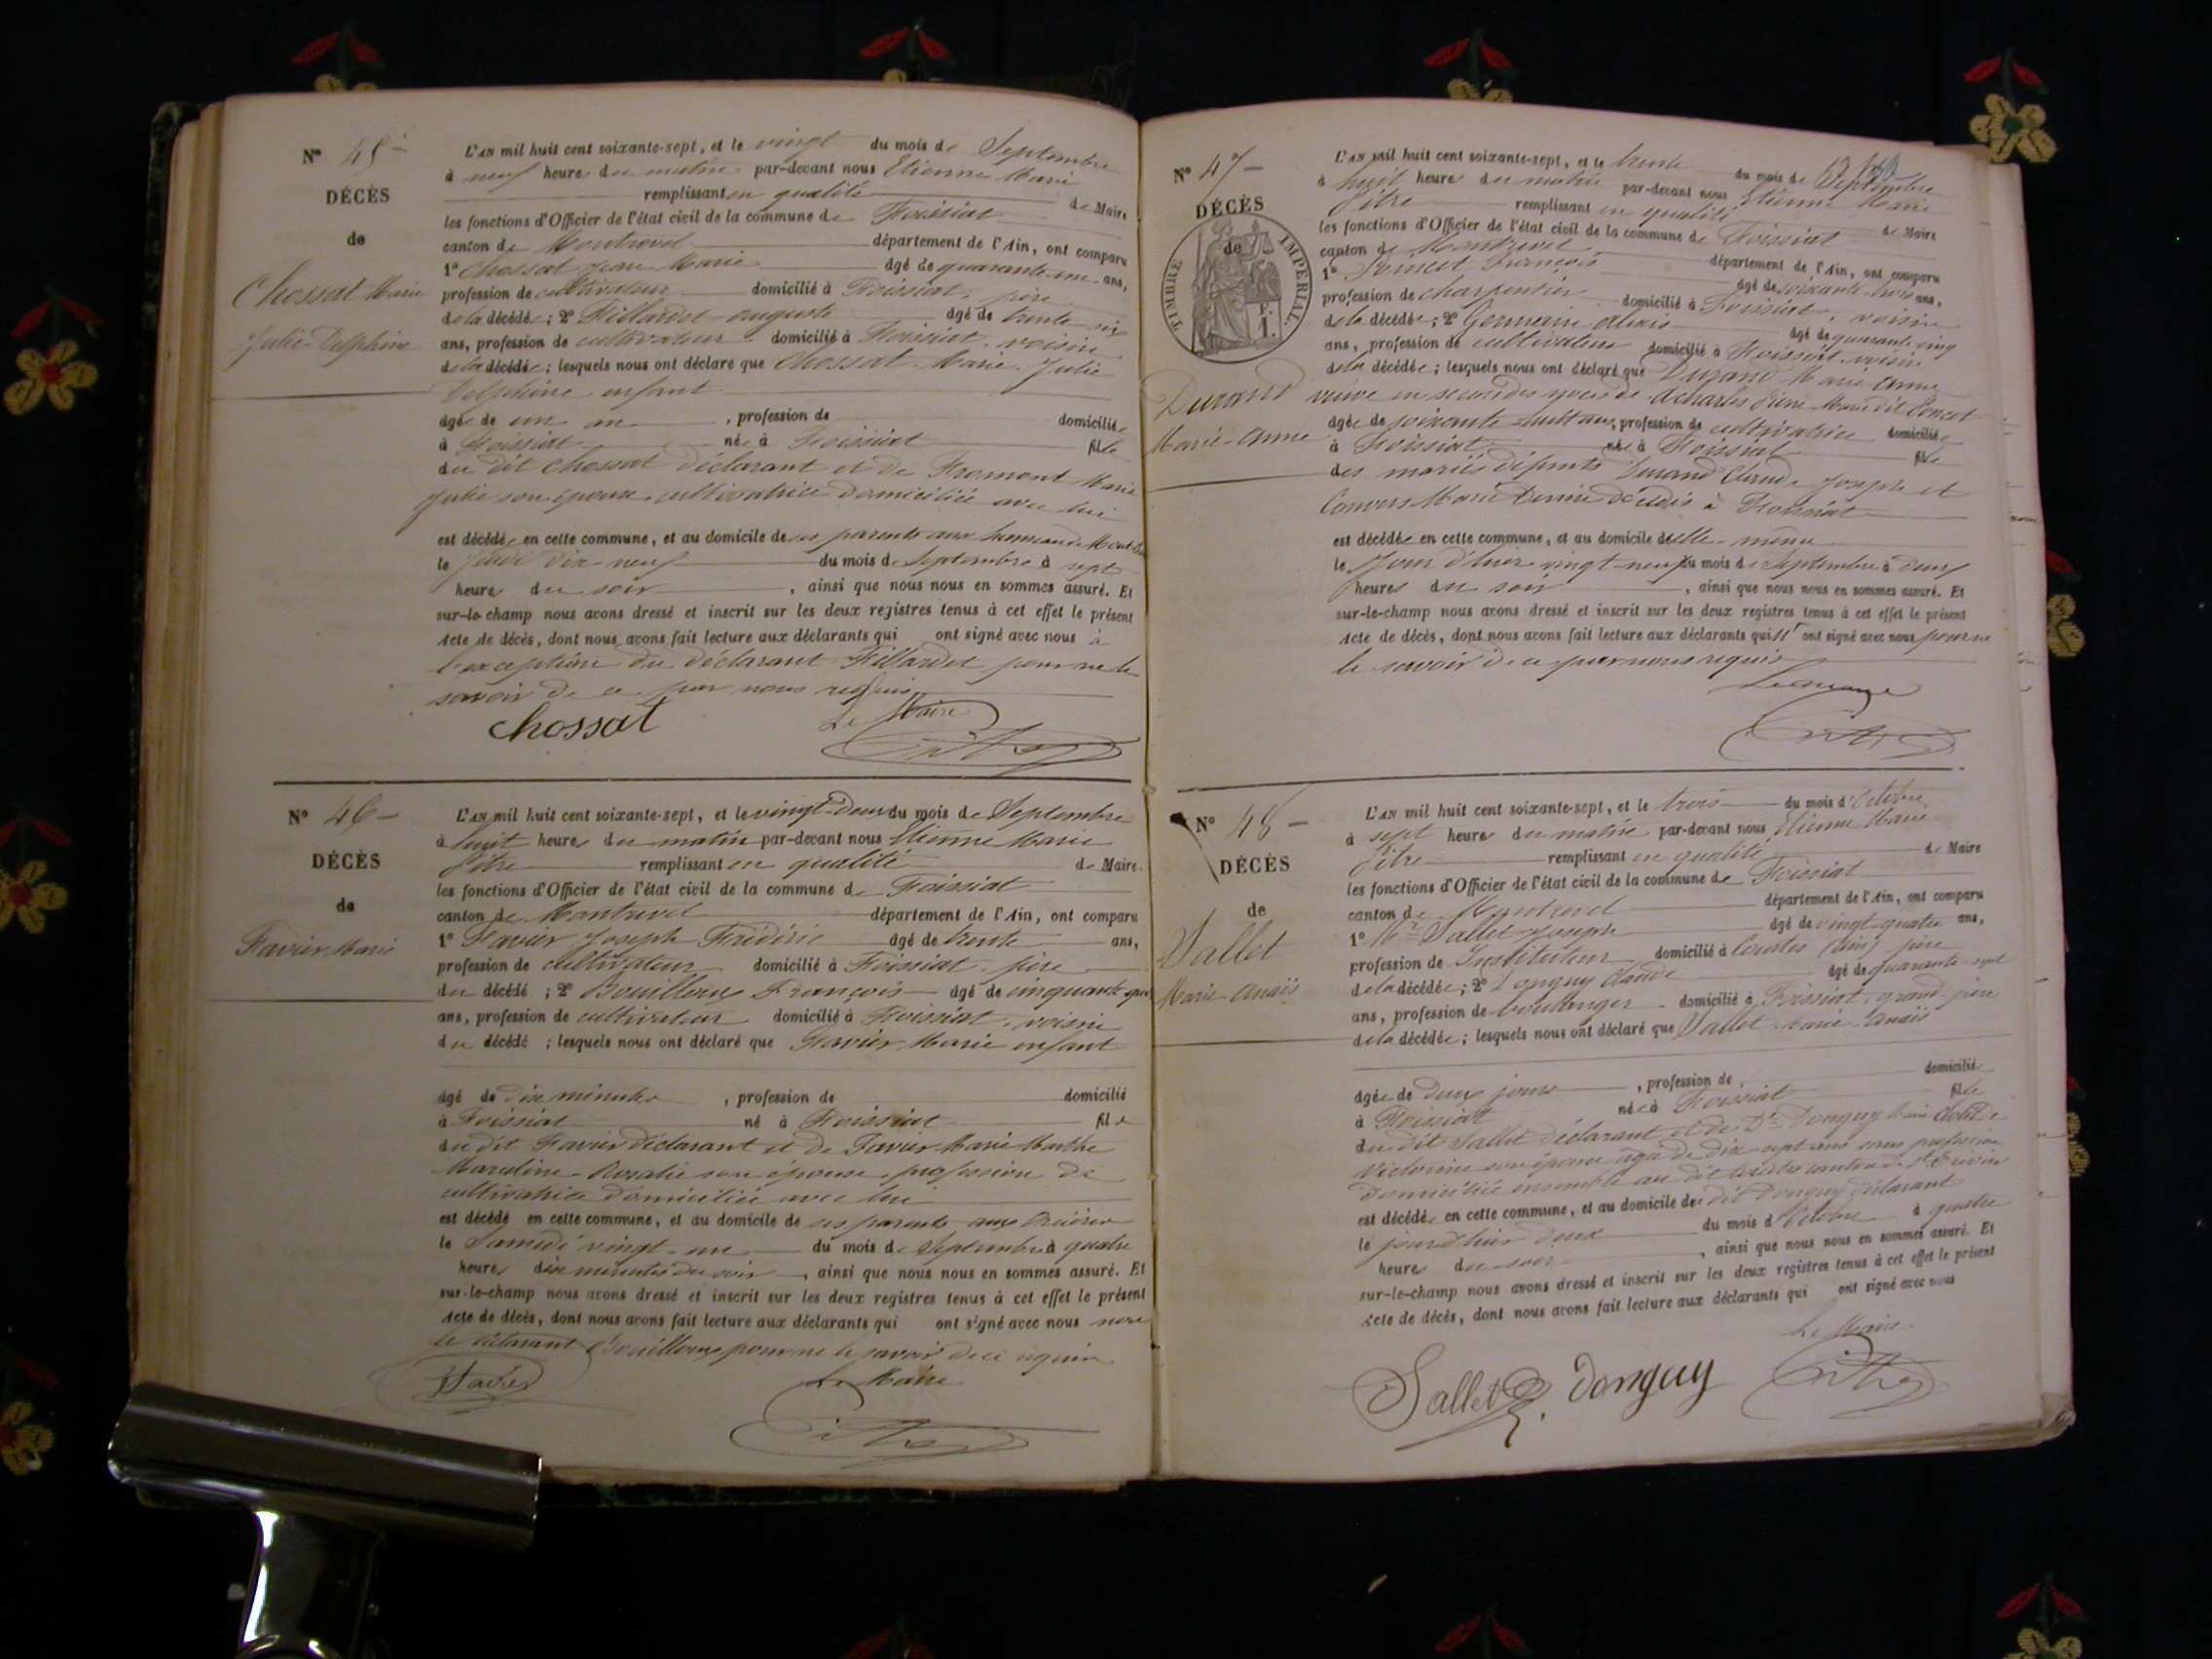 N° 45
DÉCÈS
de
Chossat Marie
Julie Delphine
L'AN mil huit cent soixante-sept, et le vingt du mois de Septembre
à neuf heures du matin par-devant nous Etienne Marie
remplissant en qualité de Maire
les fonctions d'Officier de l'état civil de la commune de Foissiat
canton de Montrevel département de l'Ain, ont comparu
1° Chossat Jean Marie âgé de quarante un ans,
profession de cultivateur domicilié à Foissiat, père
de la décédée; 2° Fillardet auguste âgé de trente six
ans, profession de cultivateur domicilié à Foissiat, voisin
de la décédée; lesquels nous ont déclaré que Chossat Marie Julie
Delphine enfant
âgée de un an, profession de domiciliée
à Foissiat née à Foissiat fille
du dit Chossat déclarant et de Fromont Marie
Julie son épouse cultivatrice domiciliée avec lui
est décédée en cette commune, et au domicile de ses parents aux hameau de
le Jeudi dix-neuf du mois de Septembre à sept
heures du soir, ainsi que nous nous en sommes assuré. Et
sur-le-champ nous avons dressé et inscrit sur les deux registres tenus à cet effet le présent
Acte de décès, dont nous avons fait lecture aux déclarants qui ont signé avec nous à
l'exception du déclarant Fillardet pour ne le
savoir de ce par nous requis
Chossat Le Maire
Pitre
N° 46
DÉCÈS
de
Favier Marie
L'AN mil huit cent soixante-sept, et le vingt-deux du mois de Septembre
à huit heures du matin par-devant nous Etienne Marie
Pitre remplissant en qualité de Maire
les fonctions d'Officier de l'état civil de la commune de Foissiat
canton de Montrevel département de l'Ain, ont comparu
1° Favier Joseph Frédéric âgé de trente ans,
profession de cultivateur domicilié à Foissiat, père
du décédé; 2° Bouilloux François âgé de cinquante
ans, profession de cultivateur domicilié à Foissiat, voisin
du décédé; lesquels nous ont déclaré que Favier Marie enfant
âgé de dix minutes, profession de domicilié
à Foissiat né à Foissiat fils
du dit Favier déclarant et de Favier Marie Marthe
Rosalie son épouse profession de
cultivatrice domiciliée avec lui
est décédé en cette commune, et au domicile de ses parents aux
le Samedi vingt-un du mois de Septembre à quatre
heures dix minutes du soir, ainsi que nous nous en sommes assuré. Et
sur-le-champ nous avons dressé et inscrit sur les deux registres tenus à cet effet le présent
Acte de décès, dont nous avons fait lecture aux déclarants qui ont signé avec nous
le déclarant Bouilloux pour ne le savoir de ce requis
Favier Le Maire
Pitre
N° 47
DÉCÈS
de
TIMBRE IMPÉRIAL
F.
1.
Durand
Marie-Anne
L'AN mil huit cent soixante-sept, et le trente du mois de Septembre
à huit heures du matin par-devant nous Etienne Marie
Pitre remplissant en qualité de Maire
les fonctions d'Officier de l'état civil de la commune de Foissiat
canton de Montrevel département de l'Ain, ont comparu
1° Poncet François âgé de soixante-trois ans,
profession de charpentier domicilié à Foissiat, voisin
de la décédée; 2° Germain alexis âgé de quarante cinq
ans, profession de cultivateur domicilié à Foissiat, voisin
de la décédée; lesquels nous ont déclaré que Durand Marie Anne
veuve en secondes noces de Acharles Pierre Marie dit Poncet
âgée de soixante huit ans, profession de cultivatrice domiciliée
à Foissiat née à Foissiat fille
des mariés défunts Durand Claude Joseph et
Convers Marie Denise décédés à Foissiat
est décédée en cette commune, et au domicile d'elle-même
le Jour d'hier vingt-neuf du mois de Septembre à deux
heures du soir, ainsi que nous nous en sommes assuré. Et
sur-le-champ nous avons dressé et inscrit sur les deux registres tenus à cet effet le présent
Acte de décès, dont nous avons fait lecture aux déclarants qui n' ont signé avec nous pour ne
le savoir de ce par nous requis
Le maire
Pitre
N° 48
DÉCÈS
de
Sallet
Marie-Anaïs
L'AN mil huit cent soixante-sept, et le trois du mois d'Octobre
à sept heures du matin par-devant nous Etienne Marie
Pitre remplissant en qualité de Maire
les fonctions d'Officier de l'état civil de la commune de Foissiat
canton de Montrevel département de l'Ain, ont comparu
1° Mr Sallet Joseph âgé de vingt-quatre ans,
profession de Instituteur domicilié à Courtes (Ain) père
de la décédée; 2° Donguy Claude âgé de quarante-sept
ans, profession de boullanger domicilié à Foissiat, grand père
de la décédée; lesquels nous ont déclaré que Sallet Marie Anaïs
âgée de deux jours, profession de domiciliée
à Foissiat née à Foissiat fille
du dit Sallet déclarant et de De Donguy Marie Clotilde
Victorine son épouse âgée de dix-sept ans sans profession
domiciliée ensemble au dit Courtes canton de St Trivier
est décédée en cette commune, et au domicile de dit Donguy déclarant
le jour d'hier deux du mois d'Octobre à quatre
heures du soir, ainsi que nous nous en sommes assuré. Et
sur-le-champ nous avons dressé et inscrit sur les deux registres tenus à cet effet le présent
Acte de décès, dont nous avons fait lecture aux déclarants qui ont signé avec nous
Le Maire
Sallet donguy Pitre